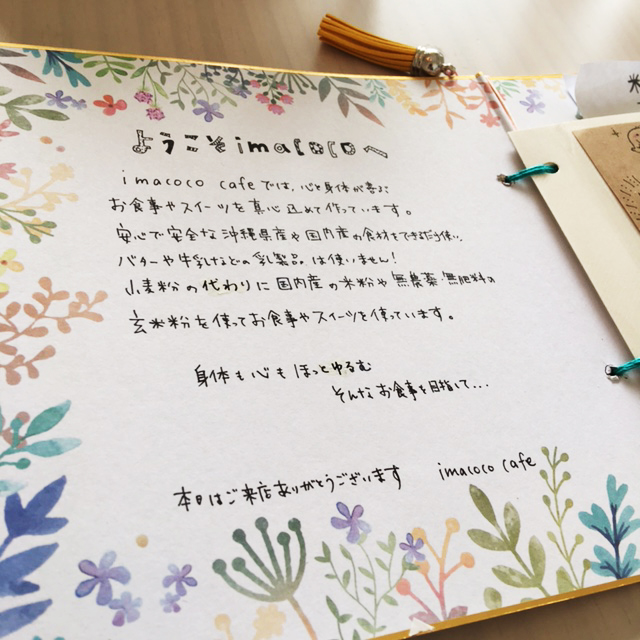 ようこそimacocoへ
imacoco cafeでは、心と身体が喜ぶ
お食事やスイーツを真心込めて作っています。
安心で安全な沖縄県産や国内産の食材をできるだけ使い、
バターや牛乳などの乳製品は使いません!
小麦粉の代わりに国内産の米粉や無農薬・無肥料の
玄米粉を使ってお食事やスイーツを作っています。
身体も心もほっとゆるむ
そんなお食事を目指して...
本日はご来店ありがとうございます imacoco cafe